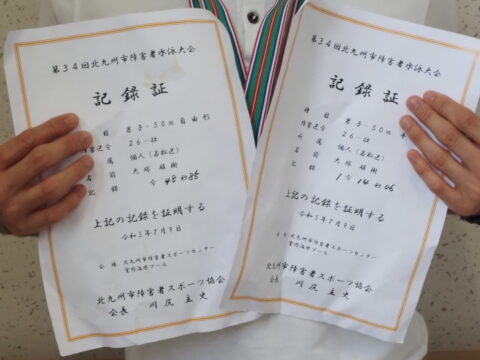 第34回北九州市障害者水泳大会
記録証
種目 男子・50m自由形
障害区分 26-社
所属 個人(若松区)
名前 大塚
記録 分48秒85
上記の記録を証明する
令和5年7月9日
会場 北九州市障害者スポーツセンター
北九州市障害者スポーツ協会
会長 川尻
第34回北九州市障害者水泳大会
記録証
種目 男子・50m
障害区分 26-社
所属 個人(若松区)
名前 大塚
記録 1分14秒06
上記の記録を証明する
令和5年7月9日
会場 北九州市障害者スポーツセンター
北九州市障害者スポーツ協会
会長 川尻